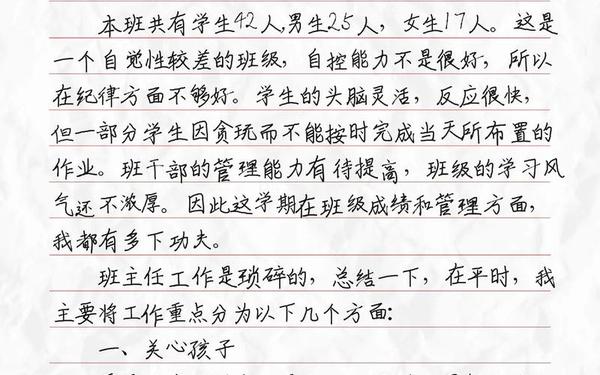 本班共有学生42人,男生25人，女生17人。这是
一个自觉性较差的班级，自控能力不是很好，所以
在纪律方面不够好。学生的头脑灵活，反应很快，
但一部分学生因贪玩而不能按时完成当天所布置的
作业。班干部的管理能力有待提高，班级的学习风
气还不浓厚。因此这学期在班级成绩和管理方面，
我都有多下功夫。
班主任工作是琐碎的，总结一下，在平时，我
主要将工作重点分为以下几个方面:
一、关心孩子